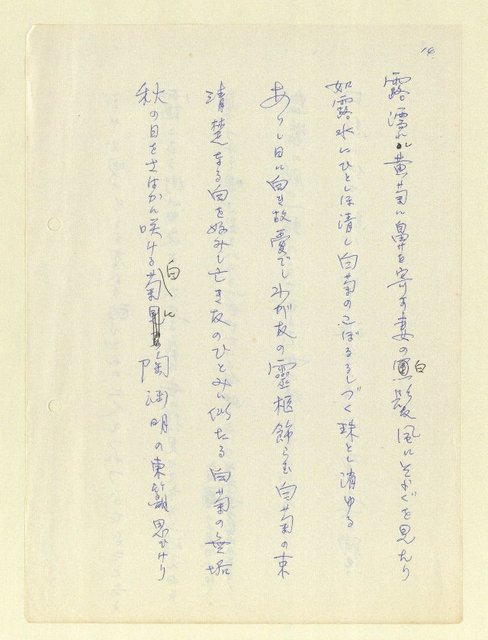 14
露に濡れ黄菊に鼻を寄す妻の白髪風にそよぐを見たり
如露水にひとしほ清し白菊のこぼるるしづく珠と消ゆる
ありし日に白を故愛でしわが友の霊柩飾る 白菊の束
清楚なる白を好みし亡き友のひとみに似たる白菊の無垢
秋の日をさはかに咲ける白菊に陶渕明の東籬思ひけり